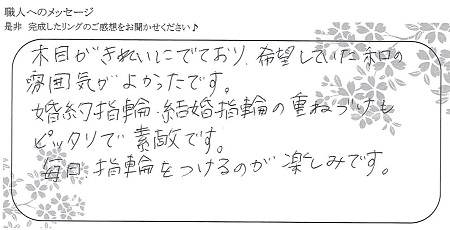 職人へのメッセージ
是非 完成したリングのご感想をお聞かせください♪
木目がきれいにでており、希望していた和の
雰囲気がよかったです。
婚約指輪、結婚指輪の重ねづけも
ピッタリで素敵です。
毎日、指輪をつけるのが楽しみです。